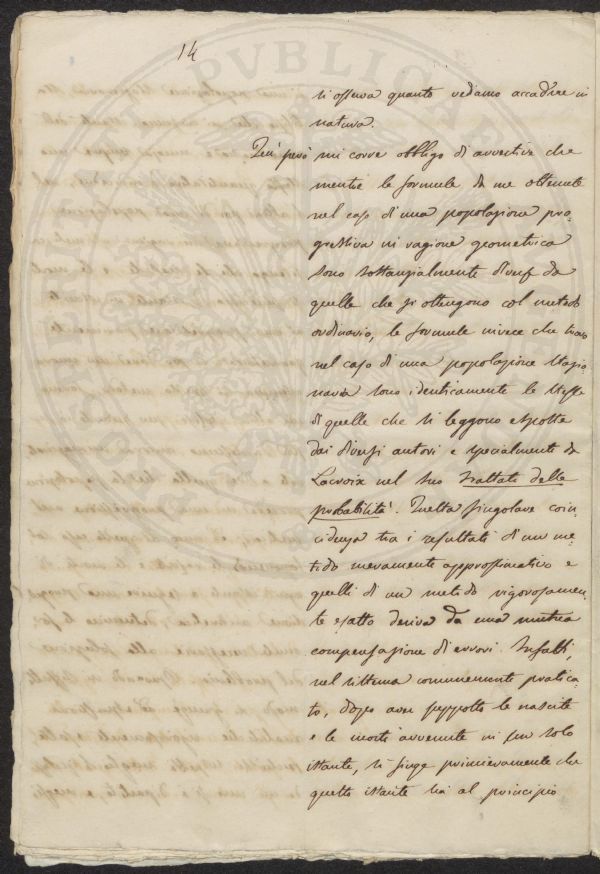 14
si osserva quanto vediamo accadere in
natura.
Quì però mi corre obbligo di avvertire che
mentre le formule da me ottenute
nel caso di una popolazione pro-
gressiva in ragione geometrica
sono sostanzialmente diverse da
quelle che si ottengono col metodo
ordinario, le formule invece che trovo
nel caso di una popolazione stazio
naria sono identicamente le stesse
di quelle che si leggono esposte
dai diversi autori e specialmente da
Lacroix nel suo trattato delle
probabilità. Questa singolare coin-
cidenza tra i resultati di un me-
todo meramente approssimativo e
quelli di un metodo rigorosamen-
te esatto deriva da una mutua
compensazione di errori. Infatti,
nel sistema comunemente pratica-
to, dopo aver supposto le nascite
e le morti avvenute in un solo
istante, si finge primieramente che
questo istante sia al principio